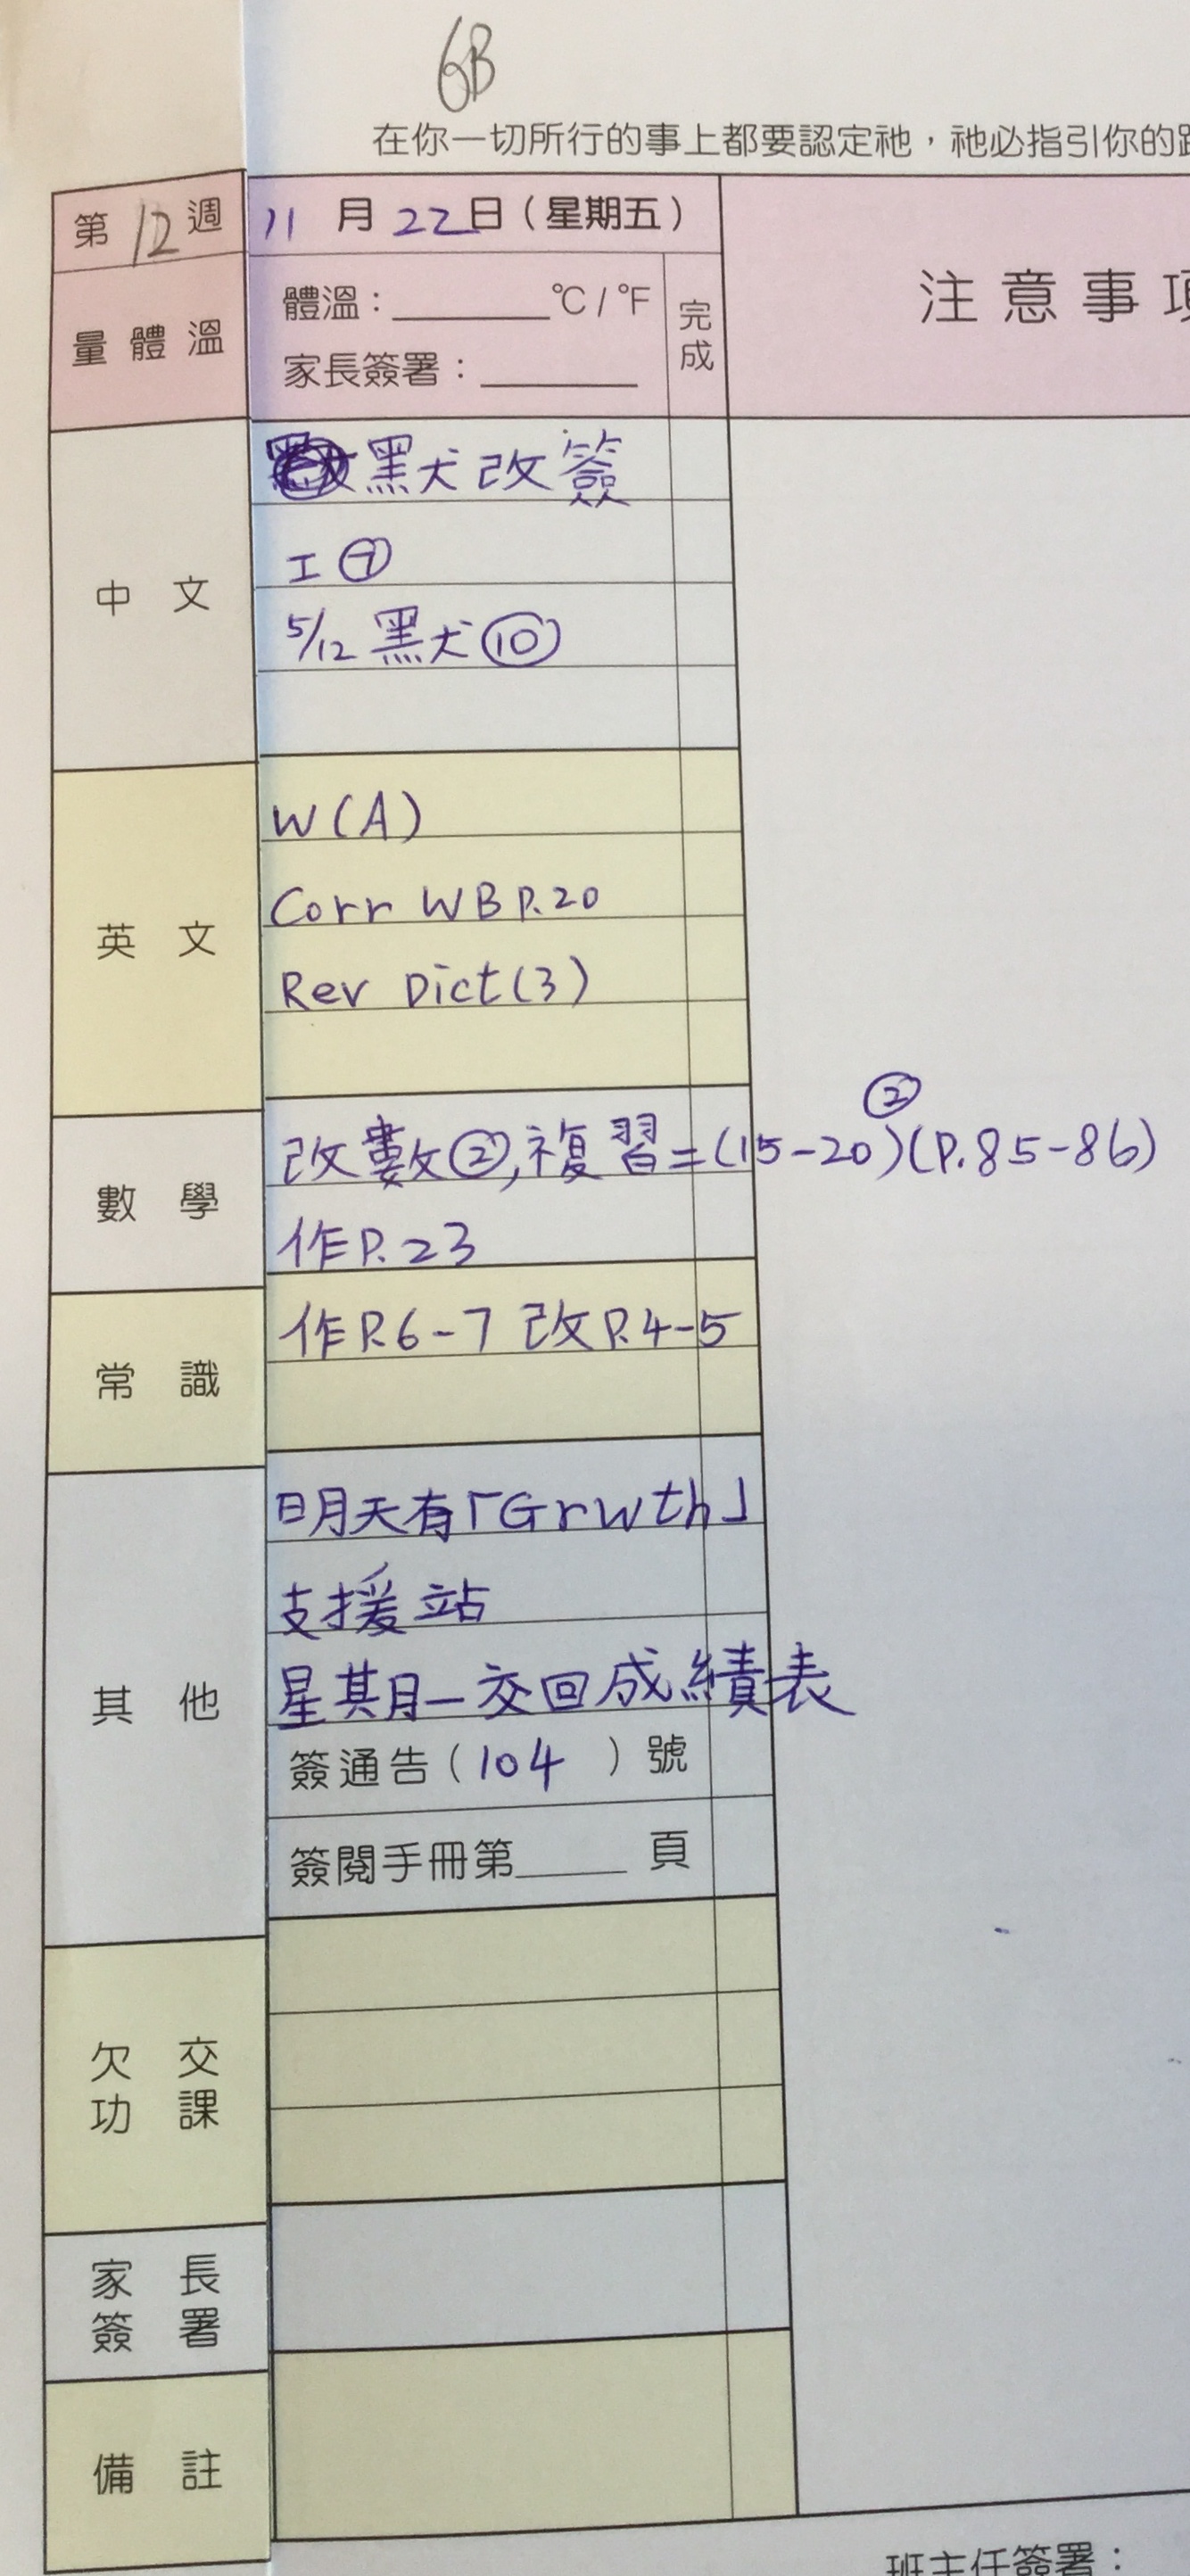 6B
在你一切所行的事上都要認定祂，祂必指引你的
第12週
11月22日（星期五）
量體溫
體溫：______℃/℉
家長簽署：______
完成
注意事項
中文
黑犬改簽
工⑦
5/12 黑犬⑩
英文
W(A)
Corr WB P.20
Rev Dict(3)
數學
②
改數②,複習=(15-20)(P.85-86)
作P.23
常識
作P.6-7 改P.4-5
其他
明天有「Grwth」
支援站
星期一交回成績表
簽通告（104）號
簽閱手冊第____頁
欠交功課
家長簽署
備註
班主任簽署：